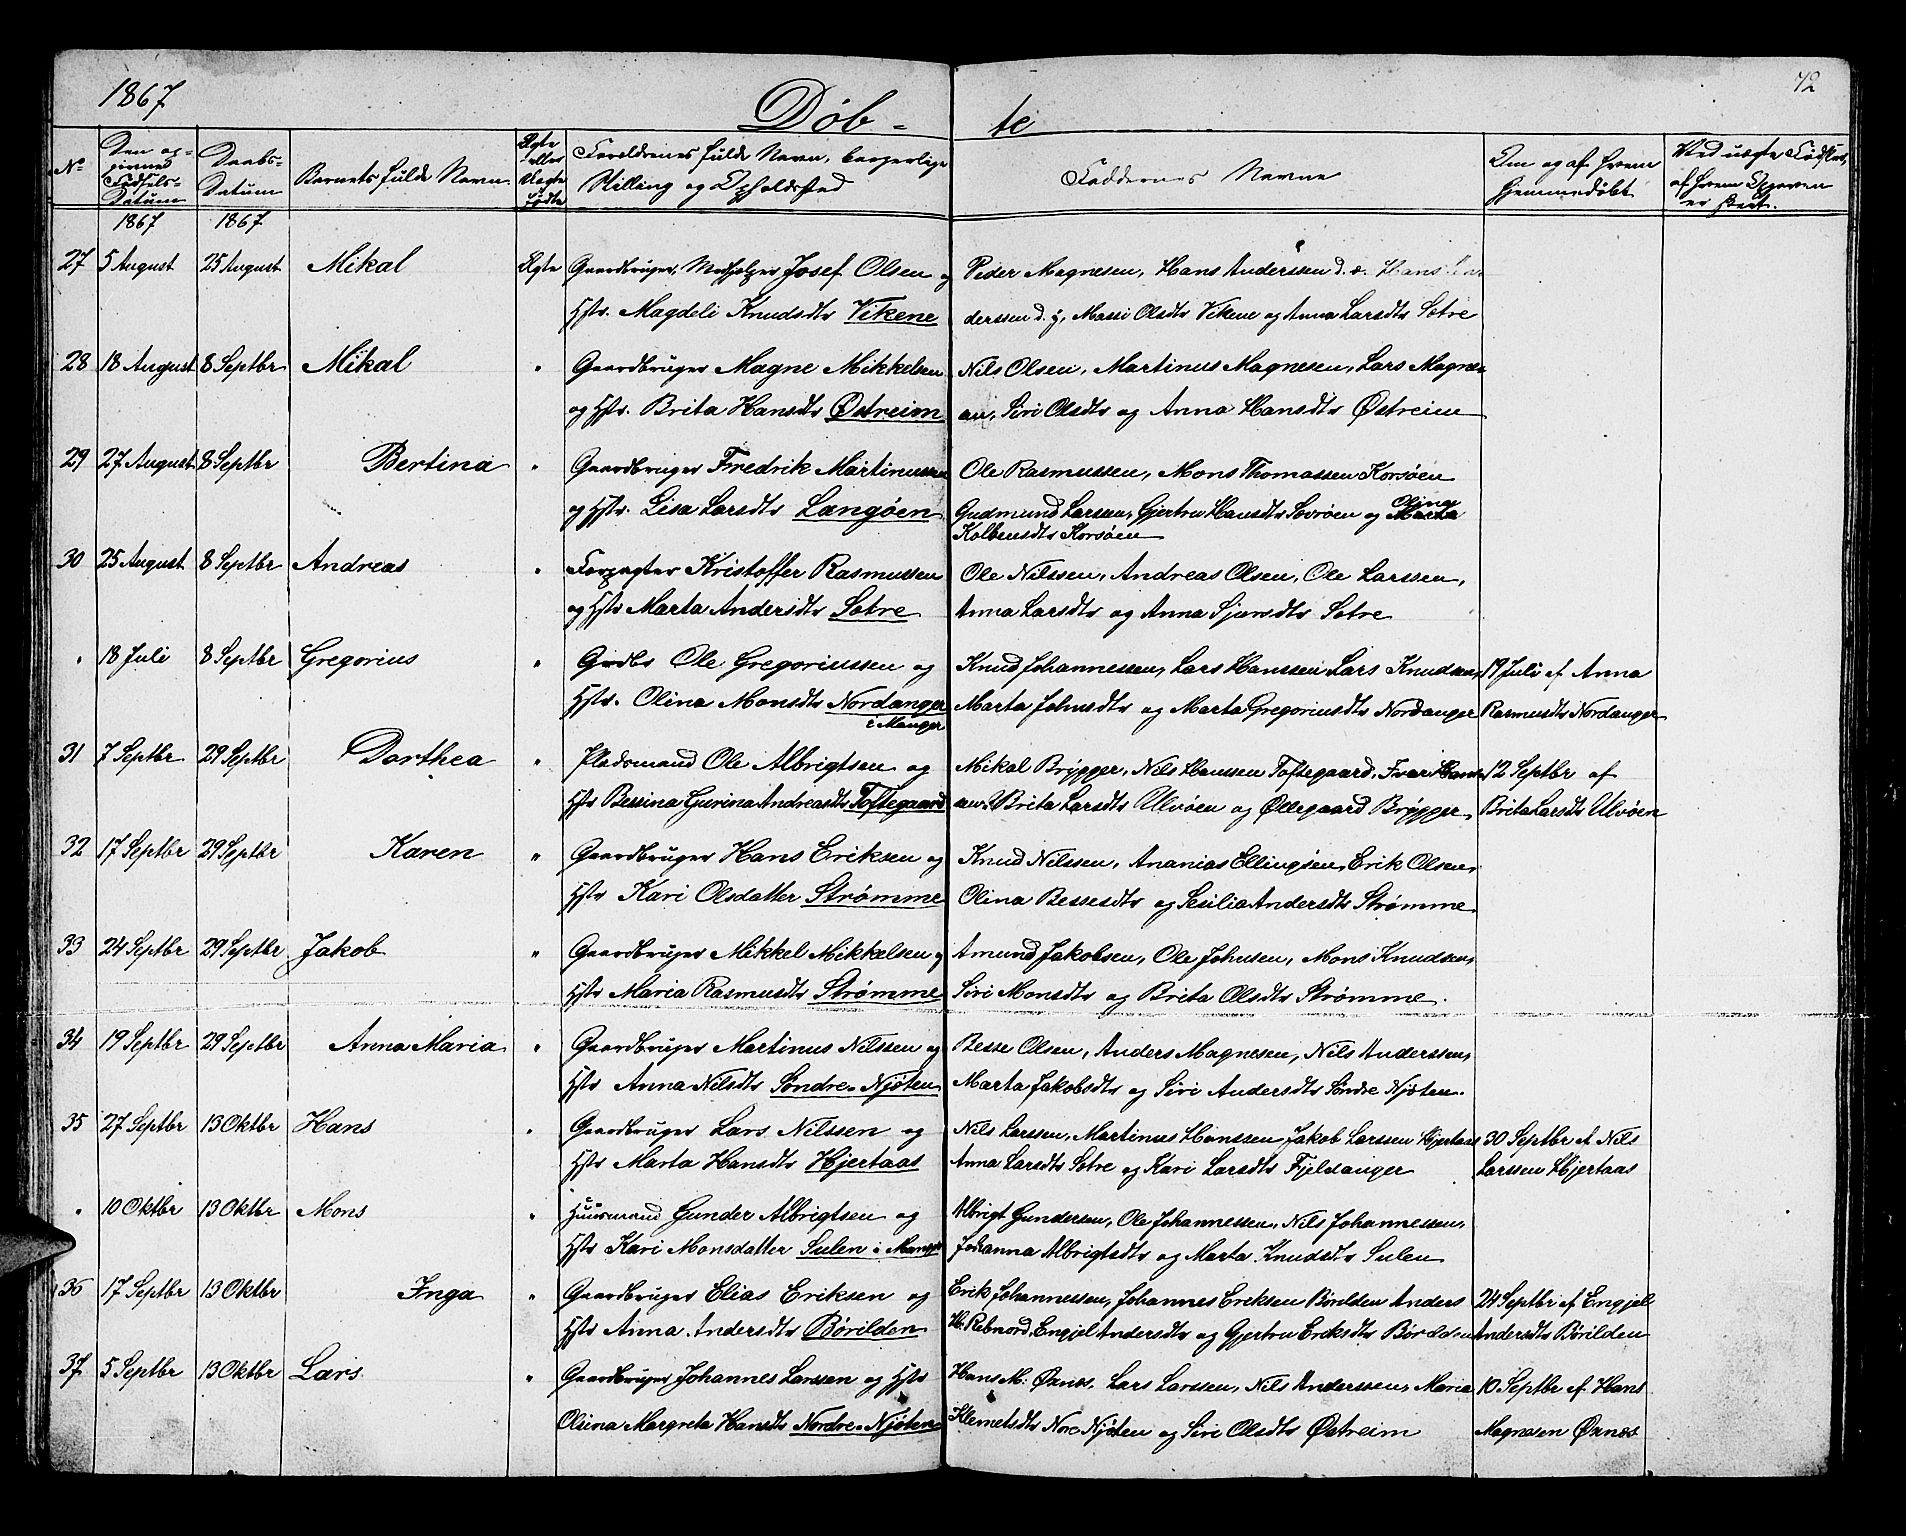 1867
Døb-te
72
No
Den opgivne Fødsels-Datum
Daabs-Datum
Barnets fulde Navn.
Ægte eller Uægte Fødte
Foreldrenes fulde Navn, borgerlige Stilling og Opholdssted
Faddernes Navne
Om og af hvem hjemmedøbt
Ved uægte Fødsler, af hvem Opgaven er skeet.
1867 1867
27 5 August 25 August Mikal Ægte Gaardbruger, Medhjelper Josef Olsen og Peder Magnesen, Hans Anderssen d. æ. Hans An-
Hstr. Magdeli Knudsdtr Vikene derssen d. y, Massi Olsdtr Vikene og Anna Larsdtr Sætre
28 18 August 8 Septbr Mikal " Gaardbruger Magne Mikkelsen Nils Olsen, Martinus Magnesen, Lars Magnes-
og Hstr. Brita Hansdtr Østreim en, Siri Olsdtr og Anna Hansdtr Østreim
29 27 August 8 Septbr Bertina " Gaardbruger Fredrik Martinussen Ole Rasmussen, Mons Thomassen Korsøen
og Hstr. Lisa Larsdtr Langøen Gudmund Larsen, Gjertru Hansdtr Sovrøen og Marta Olina
Kolbensdtr Korsøen
30 25 August 8 Septbr Andreas " Forpagter Kristoffer Rasmussen Ole Nilssen, Andreas Olsen, Ole Larssen,
og Hstr Marta Andersdtr Sætre Anna Larsdtr og Anna Sjursdtr Sætre
" 18 Juli 8 Septbr Gregorius " Grdbr Ole Gregoriussen og Knud Johannessen, Lars Hanssen Lars Knudsen, 19 Juli af Anna
Hstr. Olina Monsdtr Nordanger Marta Johnsdtr og Marta Gregoriusdtr Nordanger Rasmusdtr Nordanger
i Manger
31 7 Septbr 29 Septbr Dorthea " Pladsmand Ole Albrigtsen og Mikal Brygger, Nils Hanssen Toftegaard, Ivar Hans- 12 Septbr af
Hstr Bessina Gurina Andreasdtr Toftegaard en, Brita Larsdtr Ulvøen og Øllegaard Brygger, Brita Larsdtr Ulvøen
32 17 Septbr 29 Septbr Karen " Gaardbruger Hans Eriksen og Knud Nilssen, Ananias Ellingsen, Erik Olsen,
Hstr Kari Olsdatter Strømme Olina Bessesdtr og Sesilia Andersdtr Strømme.
33 24 Septbr 29 Septbr Jakob " Gaardbruger Mikkel Mikkelsen og Amund Jakobsen, Ole Johnsen, Mons Knudsen,
Hstr Maria Rasmusdtr Strømme Siri Monsdtr og Brita Olsdtr Strømme.
34 19 Septbr 29 Septbr Anna Maria " Gaardbruger Martinus Nilssen og Besse Olsen, Anders Magnesen, Nils Anderssen,
Hstr Anna Nilsdtr Søndre-Njøten Marta Jakobsdtr og Siri Andersdtr Søndre Njøten.
35 27 Septbr 13 Oktbr Hans " Gaardbruger Lars Nilssen og Nils Larssen, Martinus Hanssen, Jakob Larssen Hjertaas 30 Septbr af Nils
Hstr Marta Hansdtr Hjertaas Anna Larsdtr Sætre og Kari Larsdtr Fjeldanger Larssen Hjertaas
" 10 Oktbr 13 Oktbr Mons " Huusmand Gunder Albrigtsen og Albrigt Gundersen, Ole Johannessen, Nils Johannessen,
Hstr Kari Monsdatter Sulen i Manger Johanna Albrigtsdtr og Marta Knudsdtr Sulen
36 17 Septbr 13 Oktbr Inga " Gaardbruger Elias Eriksen og Erik Johannessen, Johannes Eriksen Børilden Anders 24 Septbr af Engjel
Hstr Anna Andersdtr Børilden H. Rebnord, Engjel Andersdtr og Gjertru Eriksdtr Børilden Andersdtr Børilden
37 5 Septbr 13 Oktbr Lars " Gaardbruger Johannes Larssen og Hstr Hans M. Øxnæs, Lars Larssen, Nils Anderssen, Maria 10 Septbr af Hans
Olina Margreta Hansdtr Nordre-Njøten Klemetsdtr Nore Njøten og Siri Olsdtr Østreim Magnesen Øxnæs